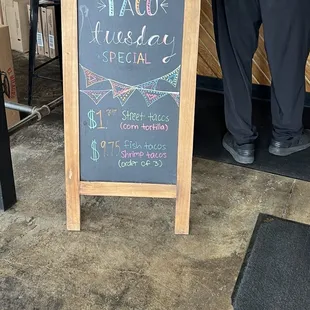 TACO
tuesday
SPECIAL
Street tacos
(corn tortilla)
$9.75 Fish tacos
Shrimp tacos
(order of 3)